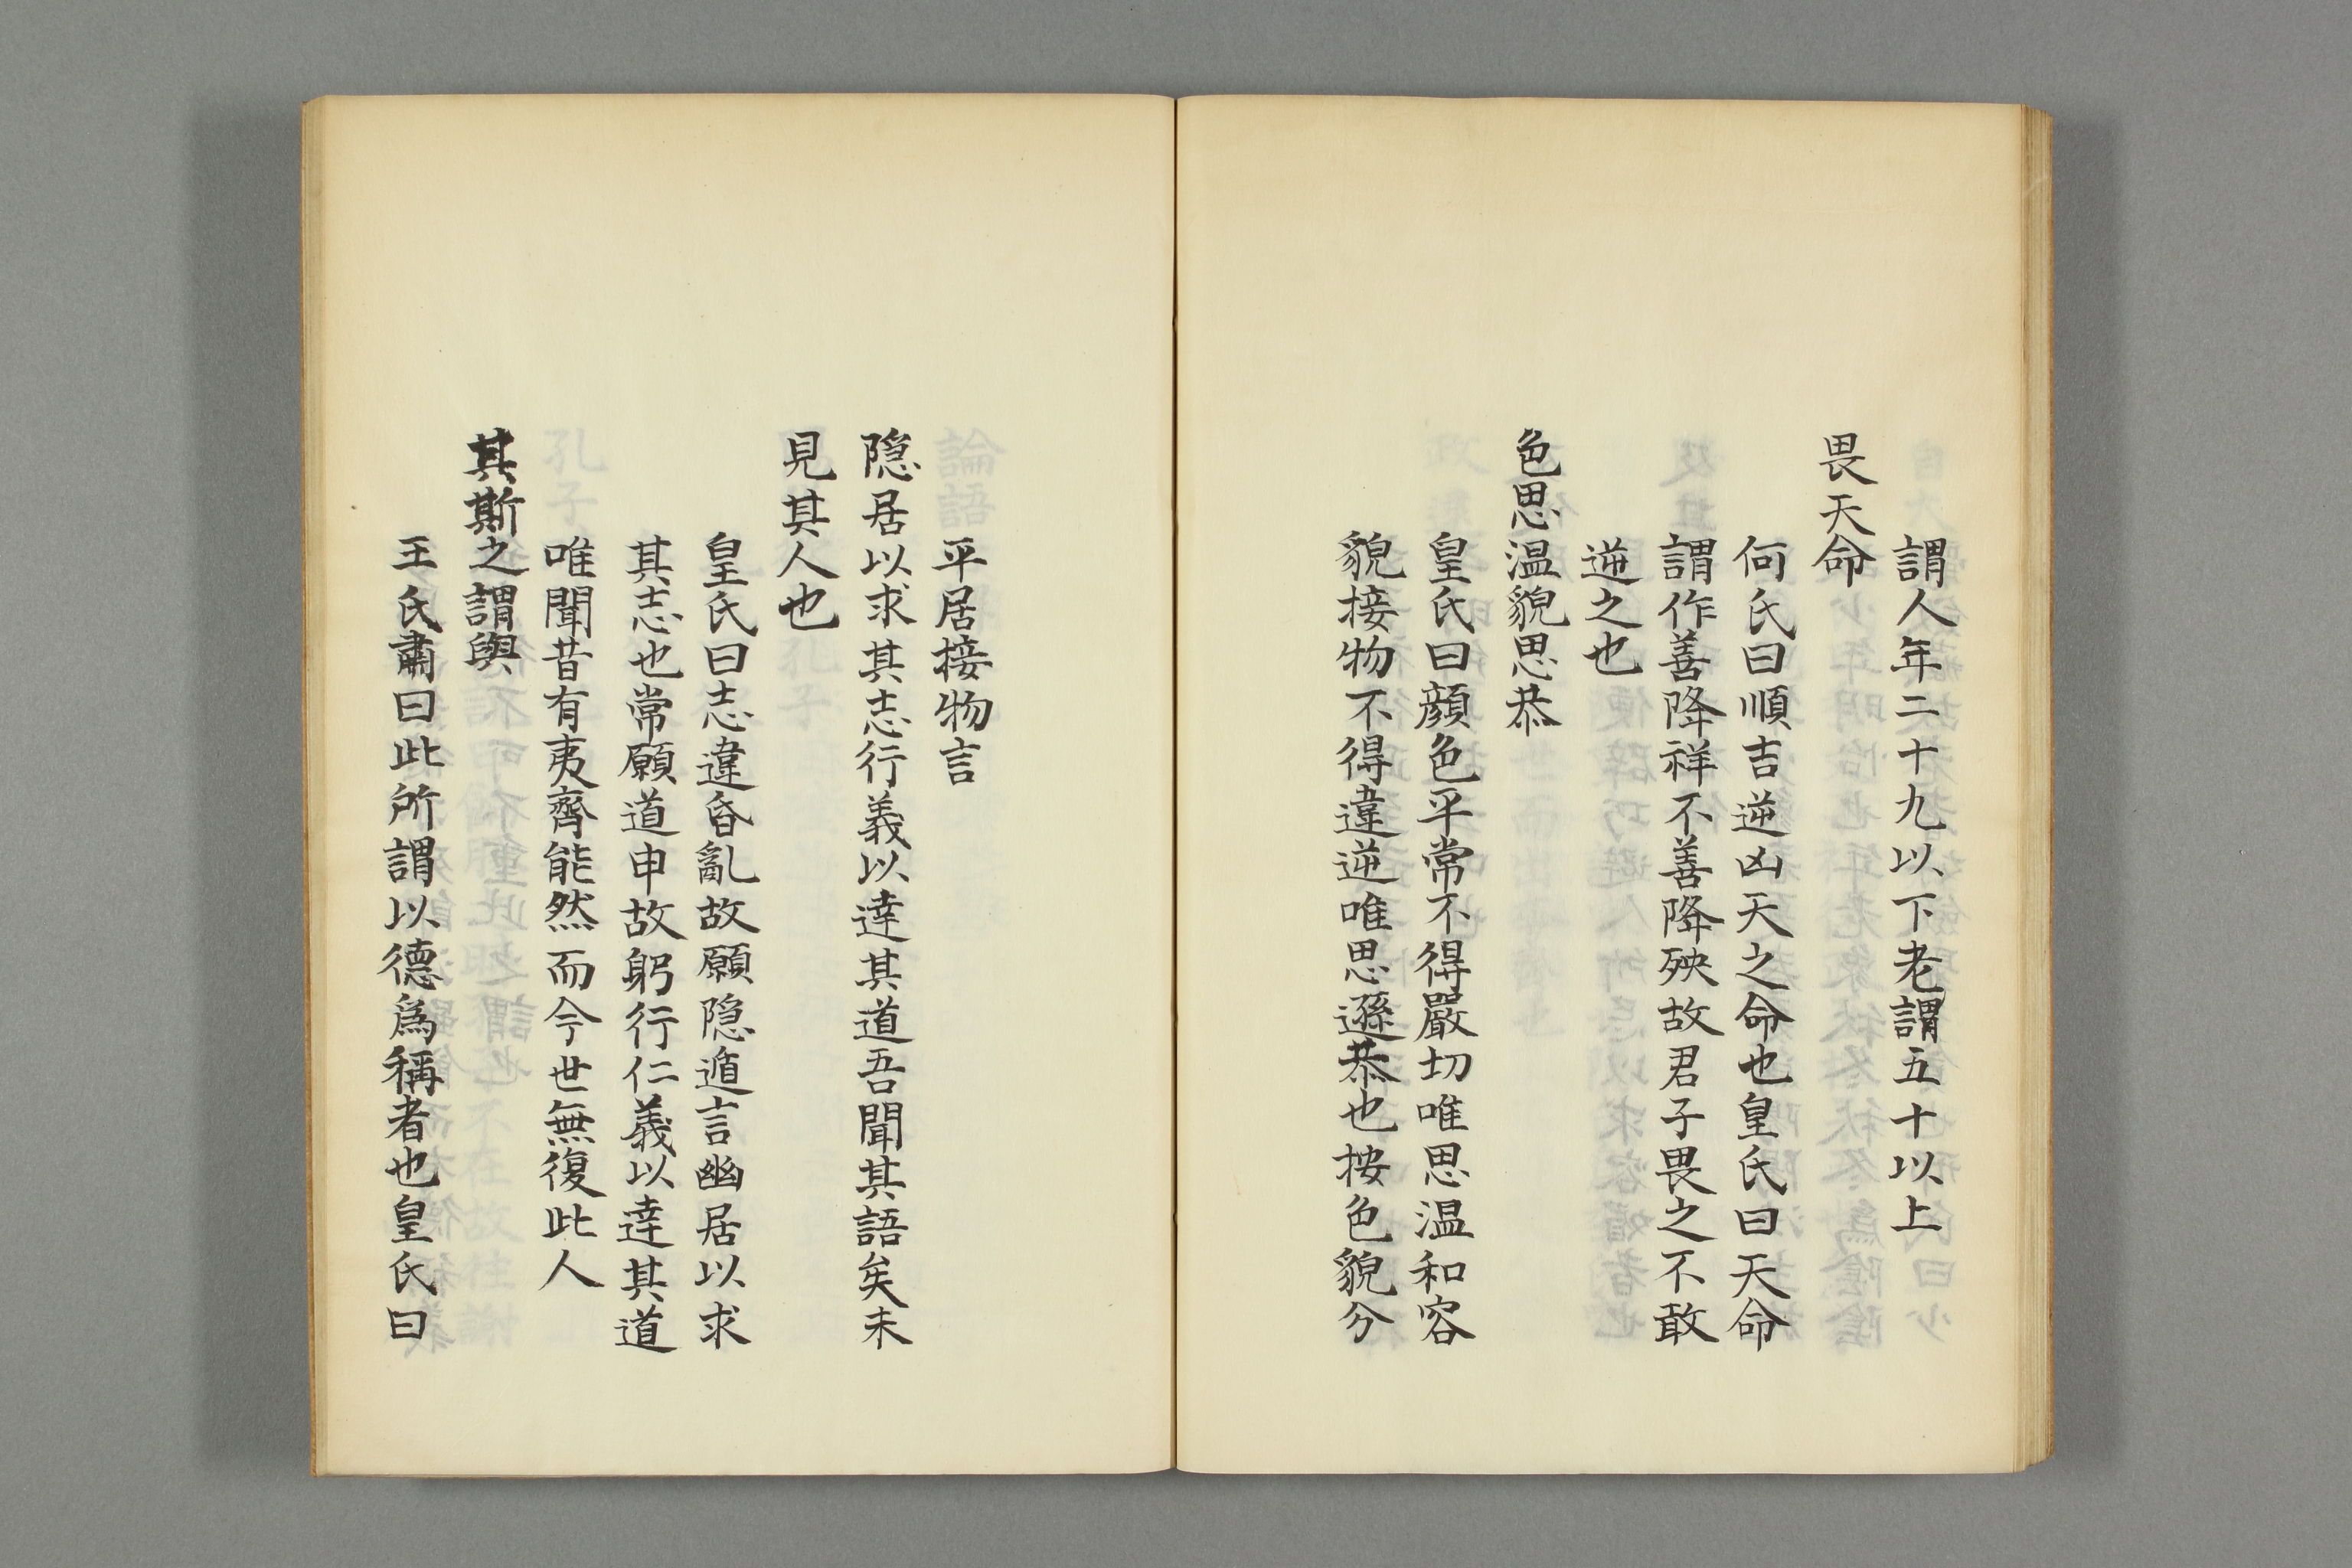 謂人年二十九以下老謂五十以上
畏天命
何氏曰順吉逆凶天之命也皇氏曰天命
謂作善降祥不善降殃故君子畏之不敢
逆之也
色思温貌思恭
皇氏曰顔色平常不得嚴切唯思温和容
貌接物不得違逆唯思遜恭也按色貌分
平居接物言
隠居以求其志行義以達其道吾聞其語矣未
見其人也
皇氏曰志違昏亂故願隠遁言幽居以求
其志也常願道申故躬行仁義以達其道
唯聞昔有夷齊能然而今世無復此人
其斯之謂與
王氏肅曰此所謂以德爲稱者也皇氏曰